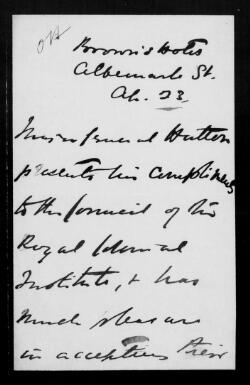 Brown's Hotel
Albemarle St.
Ap. 23.
Major General Hutton
presents his compliments
to the Council of the
Royal Colonial
Institute, & has
much pleasure
in accepting their